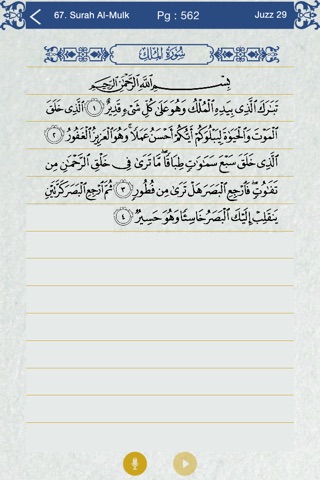 67. Surah Al-Mulk Pg : 562 Juzz 29
سُورَةُ المُلْكِ
بِسْمِ اللَّهِ الرَّحْمَٰنِ الرَّحِيمِ
تَبَارَكَ الَّذِي بِيَدِهِ الْمُلْكُ وَهُوَ عَلَىٰ كُلِّ شَيْءٍ قَدِيرٌ ١ الَّذِي خَلَقَ
الْمَوْتَ وَالْحَيَوٰةَ لِيَبْلُوَكُمْ أَيُّكُمْ أَحْسَنُ عَمَلًا ۚ وَهُوَ الْعَزِيزُ الْغَفُورُ ٢
الَّذِي خَلَقَ سَبْعَ سَمَٰوَٰتٍ طِبَاقًا ۖ مَّا تَرَىٰ فِي خَلْقِ الرَّحْمَٰنِ مِن
تَفَٰوُتٍ ۖ فَارْجِعِ الْبَصَرَ هَلْ تَرَىٰ مِن فُطُورٍ ٣ ثُمَّ ارْجِعِ الْبَصَرَ كَرَّتَيْنِ
يَنقَلِبْ إِلَيْكَ الْبَصَرُ خَاسِئًا وَهُوَ حَسِيرٌ ٤